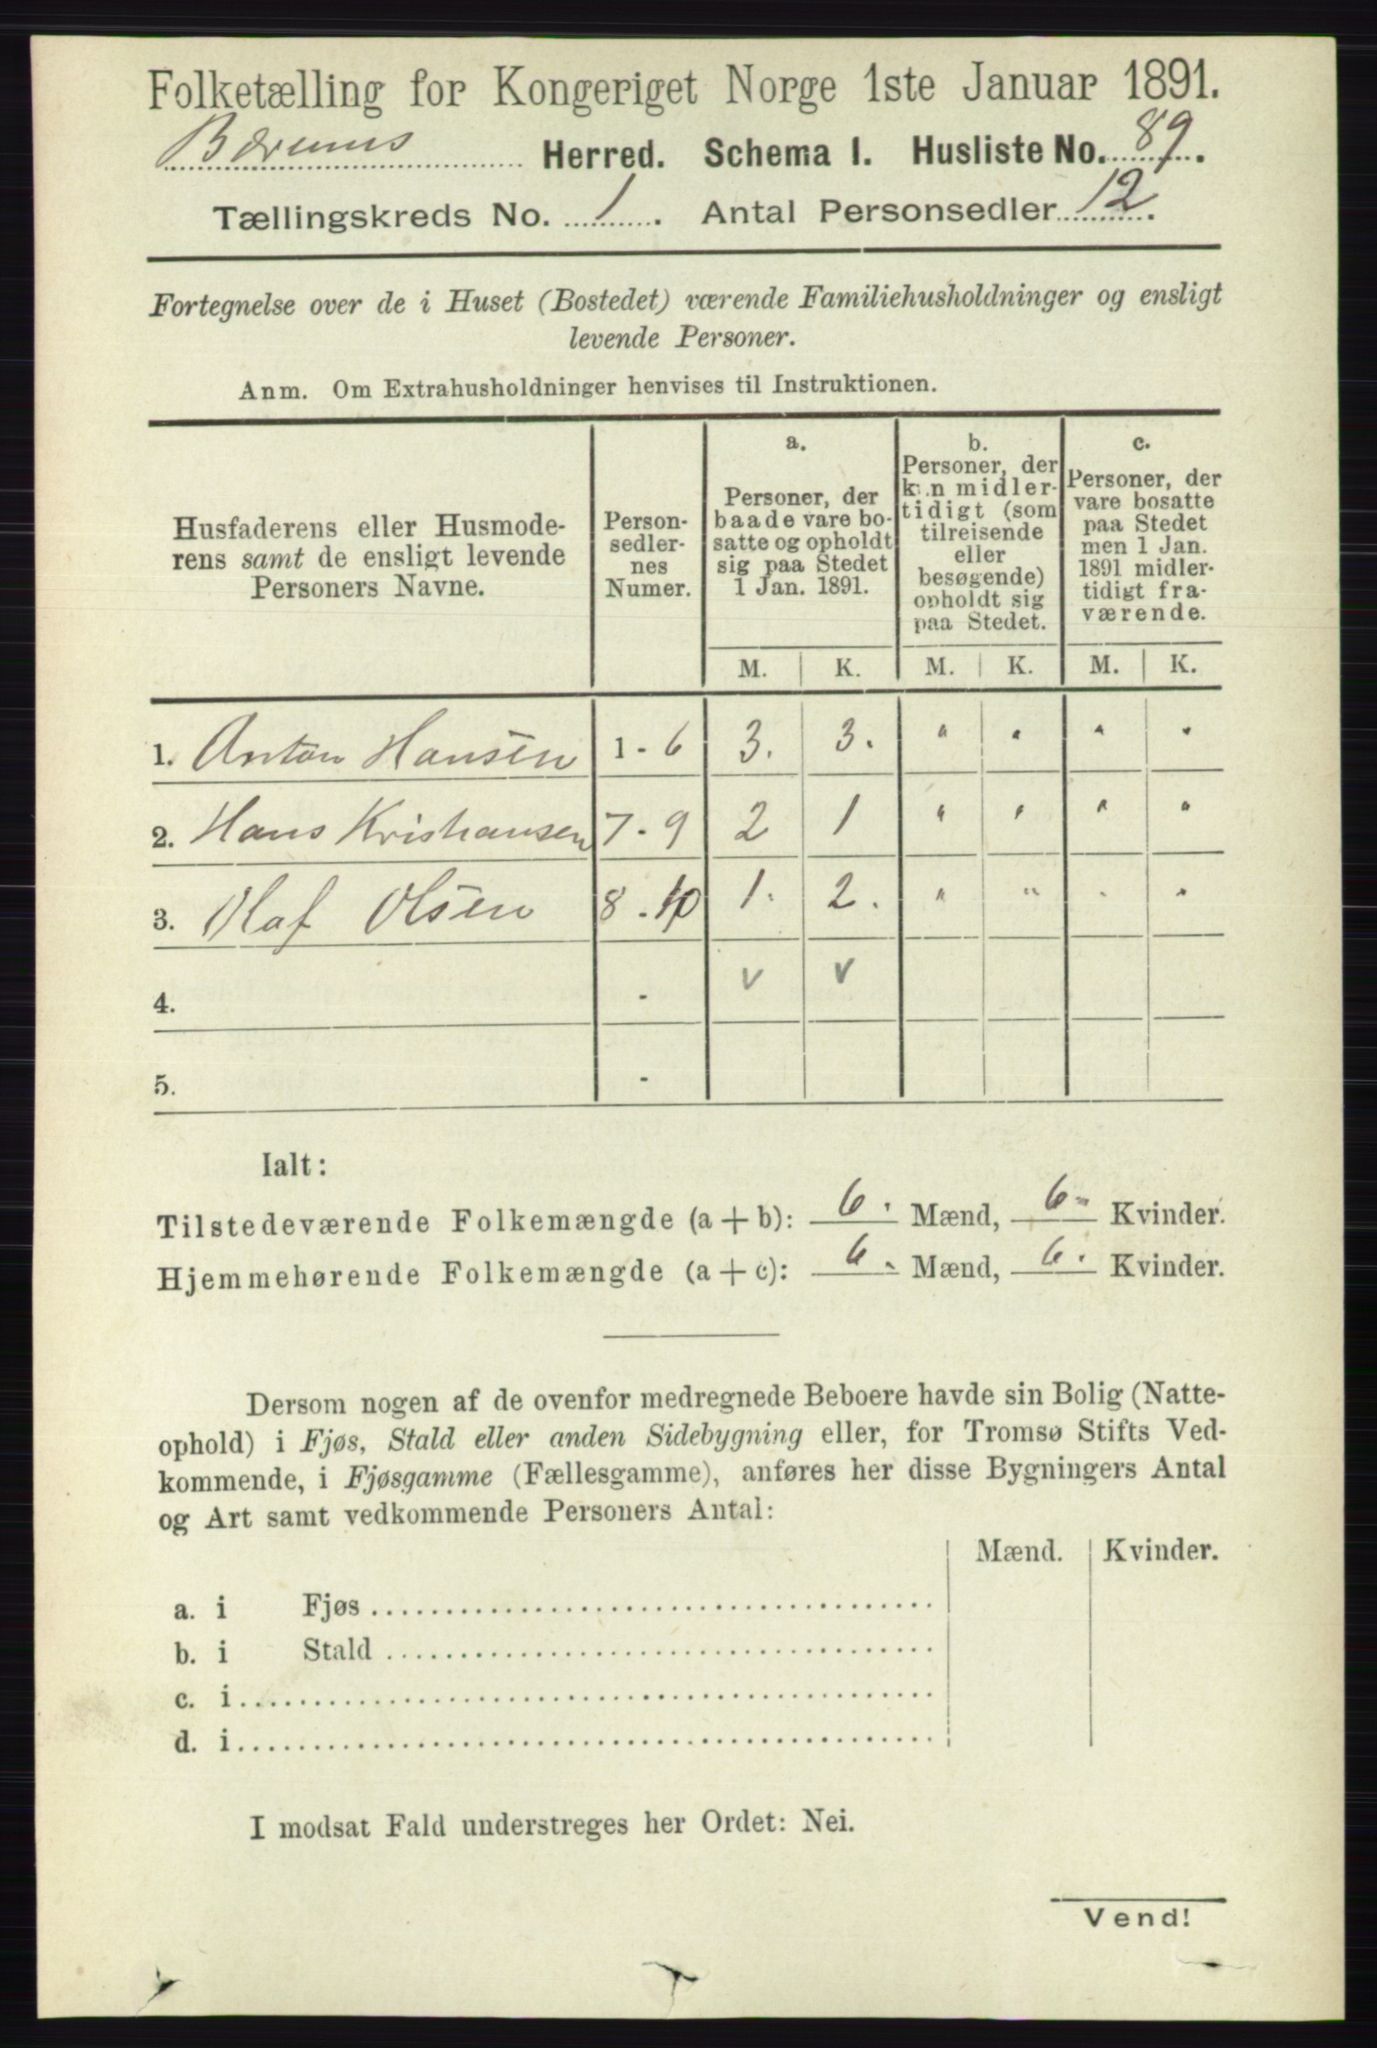 Folketælling for Kongeriget Norge 1ste Januar 1891.
Bærums Herred. Schema I. Husliste No. 89.
Tællingskreds No. 1. Antal Personsedler 12.
Fortegnelse over de i Huset (Bostedet) værende Familiehusholdninger og ensligt
levende Personer.
Anm. Om Extrahusholdninger henvises til Instruktionen.
Husfaderens eller Husmode-
rens samt de ensligt levende
Personers Navne.
Person-
sedler-
nes
Numer.
a.
Personer, der
baade vare bo-
satte og opholdt
sig paa Stedet
1 Jan. 1891.
b.
Personer, der
kun midler-
tidigt (som
tilreisende
eller
besøgende)
opholdt sig
paa Stedet.
c.
Personer, der
vare bosatte
paa Stedet
men 1 Jan.
1891 midler-
tidigt fra-
værende.
M. K. M. K. M. K.
1. Anton Hansen 1 - 6 3. 3. " " " "
2. Hans Kristiansen 7 - 9 2 1 " " " "
3. Olaf Olsen 8 - 10 1. 2. " " " "
4. - v v
5. -
Ialt:
Tilstedeværende Folkemængde (a + b): 6. Mænd, 6- Kvinder.
Hjemmehørende Folkemængde (a + c): 6. Mænd, 6. Kvinder.
Dersom nogen af de ovenfor medregnede Beboere havde sin Bolig (Natte-
ophold) i Fjøs, Stald eller anden Sidebygning eller, for Tromsø Stifts Ved-
kommende, i Fjøsgamme (Fællesgamme), anføres her disse Bygningers Antal
og Art samt vedkommende Personers Antal:
Mænd. Kvinder.
a. i Fjøs
b. i Stald
c. i
d. i
I modsat Fald understreges her Ordet: Nei.
Vend!